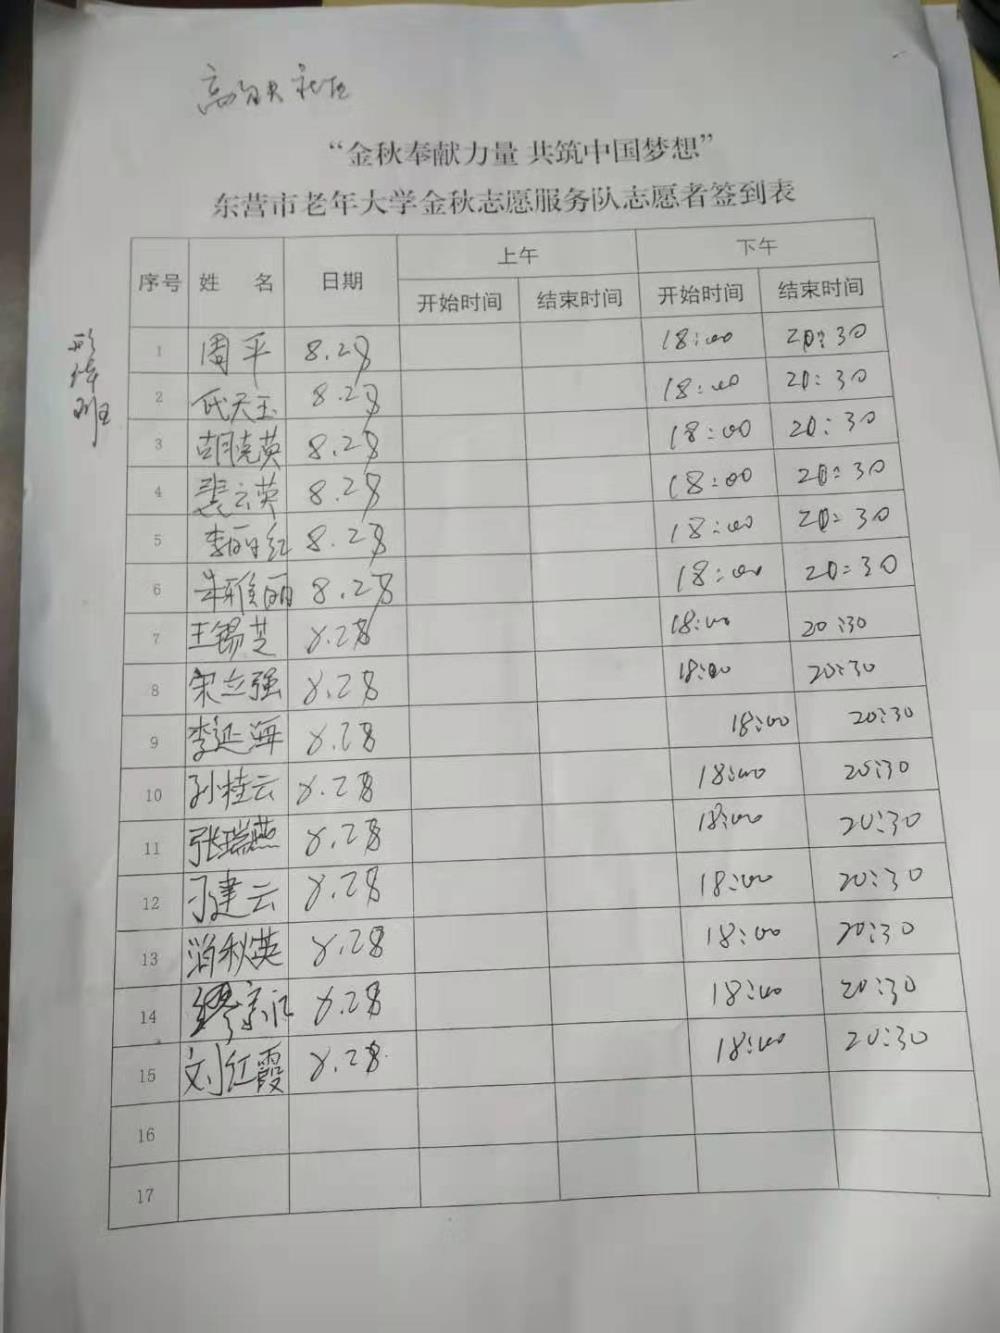 社区
“金秋奉献力量 共筑中国梦想”
东营市老年大学金秋志愿服务队志愿者签到表
序号 姓 名 日期 上午 下午
开始时间 结束时间 开始时间 结束时间
形体班
1 周平 8.28 18:00 20:30
2 代天玉 8.28 18:00 20:30
3 胡克英 8.28 18:00 20:30
4 裴云英 8.28 18:00 20:30
5 李丽红 8.28 18:00 20:30
6 朱雅丽 8.28 18:00 20:30
7 王锡芝 8.28 18:00 20:30
8 宋立强 8.28 18:00 20:30
9 李延海 8.28 18:00 20:30
10 孙桂云 8.28 18:00 20:30
11 张瑞燕 8.28 18:00 20:30
12 建云 8.28 18:00 20:30
13 秋英 8.28 18:00 20:30
14 8.28 18:00 20:30
15 刘红霞 8.28 18:00 20:30
16
17